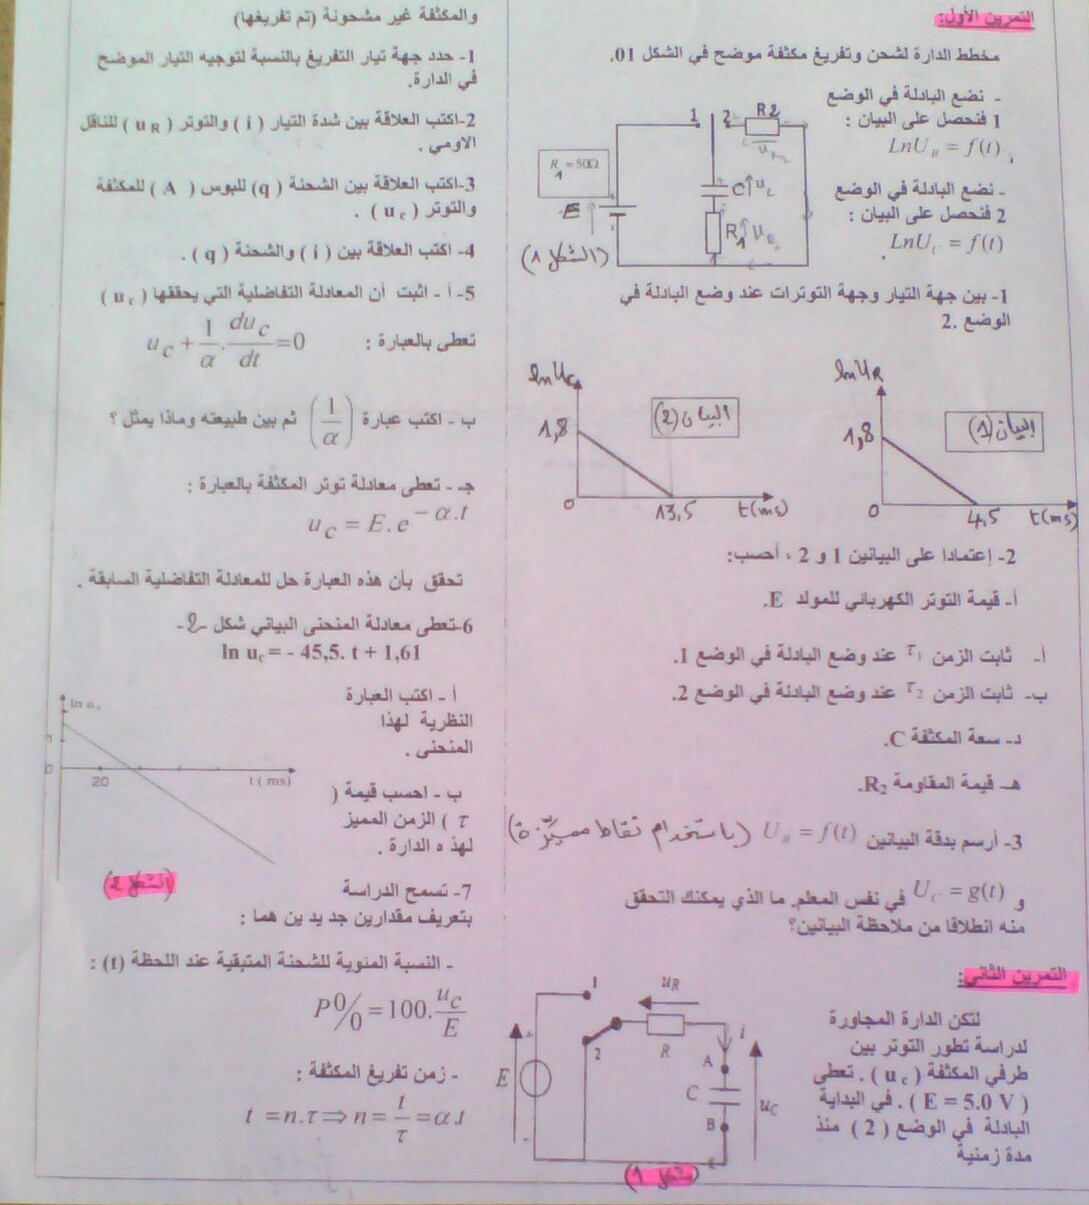 التمرين الأول:
مخطط الدارة لشحن وتفريغ مكثفة موضح في الشكل 01.
- نضع البادلة في الوضع
1 فنحصل على البيان :
LnU_R = f(t) ,
- نضع البادلة في الوضع
2 فنحصل على البيان :
LnU_C = f(t)
1 2 R2
R_1 = 50Ω
E
C u_c
R1
(الشكل 1)
1- بين جهة التيار وجهة التوترات عند وضع البادلة في
الوضع 2.
ln U_R
البيان (1)
1,8
0 4,5 t(ms)
ln U_C
البيان (2)
1,8
0 13,5 t(ms)
2- إعتمادا على البيانين 1 و 2 ، أحسب:
أ- قيمة التوتر الكهربائي للمولد E.
أ- ثابت الزمن τ1 عند وضع البادلة في الوضع 1.
ب- ثابت الزمن τ2 عند وضع البادلة في الوضع 2.
د- سعة المكثفة C.
هـ- قيمة المقاومة R2.
3- أرسم بدقة البيانين U_R = f(t) (باستخدام نقاط مميّزة)
و U_C = g(t) في نفس المعلم. ما الذي يمكنك التحقق
منه انطلاقا من ملاحظة البيانين؟
التمرين الثاني:
لتكن الدارة المجاورة
لدراسة تطور التوتر بين
طرفي المكثفة ( uc ) . تعطى
( E = 5.0 V ) . في البداية
البادلة في الوضع ( 2 ) منذ
مدة زمنية
1 u_R
2 R i
E A
C u_C
B
شكل 1
والمكثفة غير مشحونة (تم تفريغها)
1- حدد جهة تيار التفريغ بالنسبة لتوجيه التيار الموضح
في الدارة.
2-اكتب العلاقة بين شدة التيار ( i ) والتوتر ( uR ) للناقل
الاومي .
3-اكتب العلاقة بين الشحنة (q) للبوس ( A ) للمكثفة
والتوتر ( uc ) .
4- اكتب العلاقة بين ( i ) والشحنة ( q ) .
5- أ - اثبت أن المعادلة التفاضلية التي يحققها ( uc )
تعطى بالعبارة : u_C + 1/α . du_C/dt = 0
ب - اكتب عبارة (1/α) ثم بين طبيعته وماذا يمثل ؟
جـ - تعطى معادلة توتر المكثفة بالعبارة :
u_C = E.e^-α.t
تحقق بأن هذه العبارة حل للمعادلة التفاضلية السابقة .
6-تعطى معادلة المنحنى البياني شكل -2-
ln uc = - 45,5. t + 1,61
أ - اكتب العبارة
النظرية لهذا
المنحنى .
ب - احسب قيمة (
τ ) الزمن المميز
لهذه الدارة .
ln u_c
1
0 20 t ( ms)
الشكل 2
7- تسمح الدراسة
بتعريف مقدارين جديدين هما :
- النسبة المئوية للشحنة المتبقية عند اللحظة (t) :
P% = 100. u_C/E
- زمن تفريغ المكثفة :
t = n.τ ⇒ n = t/τ = α.t